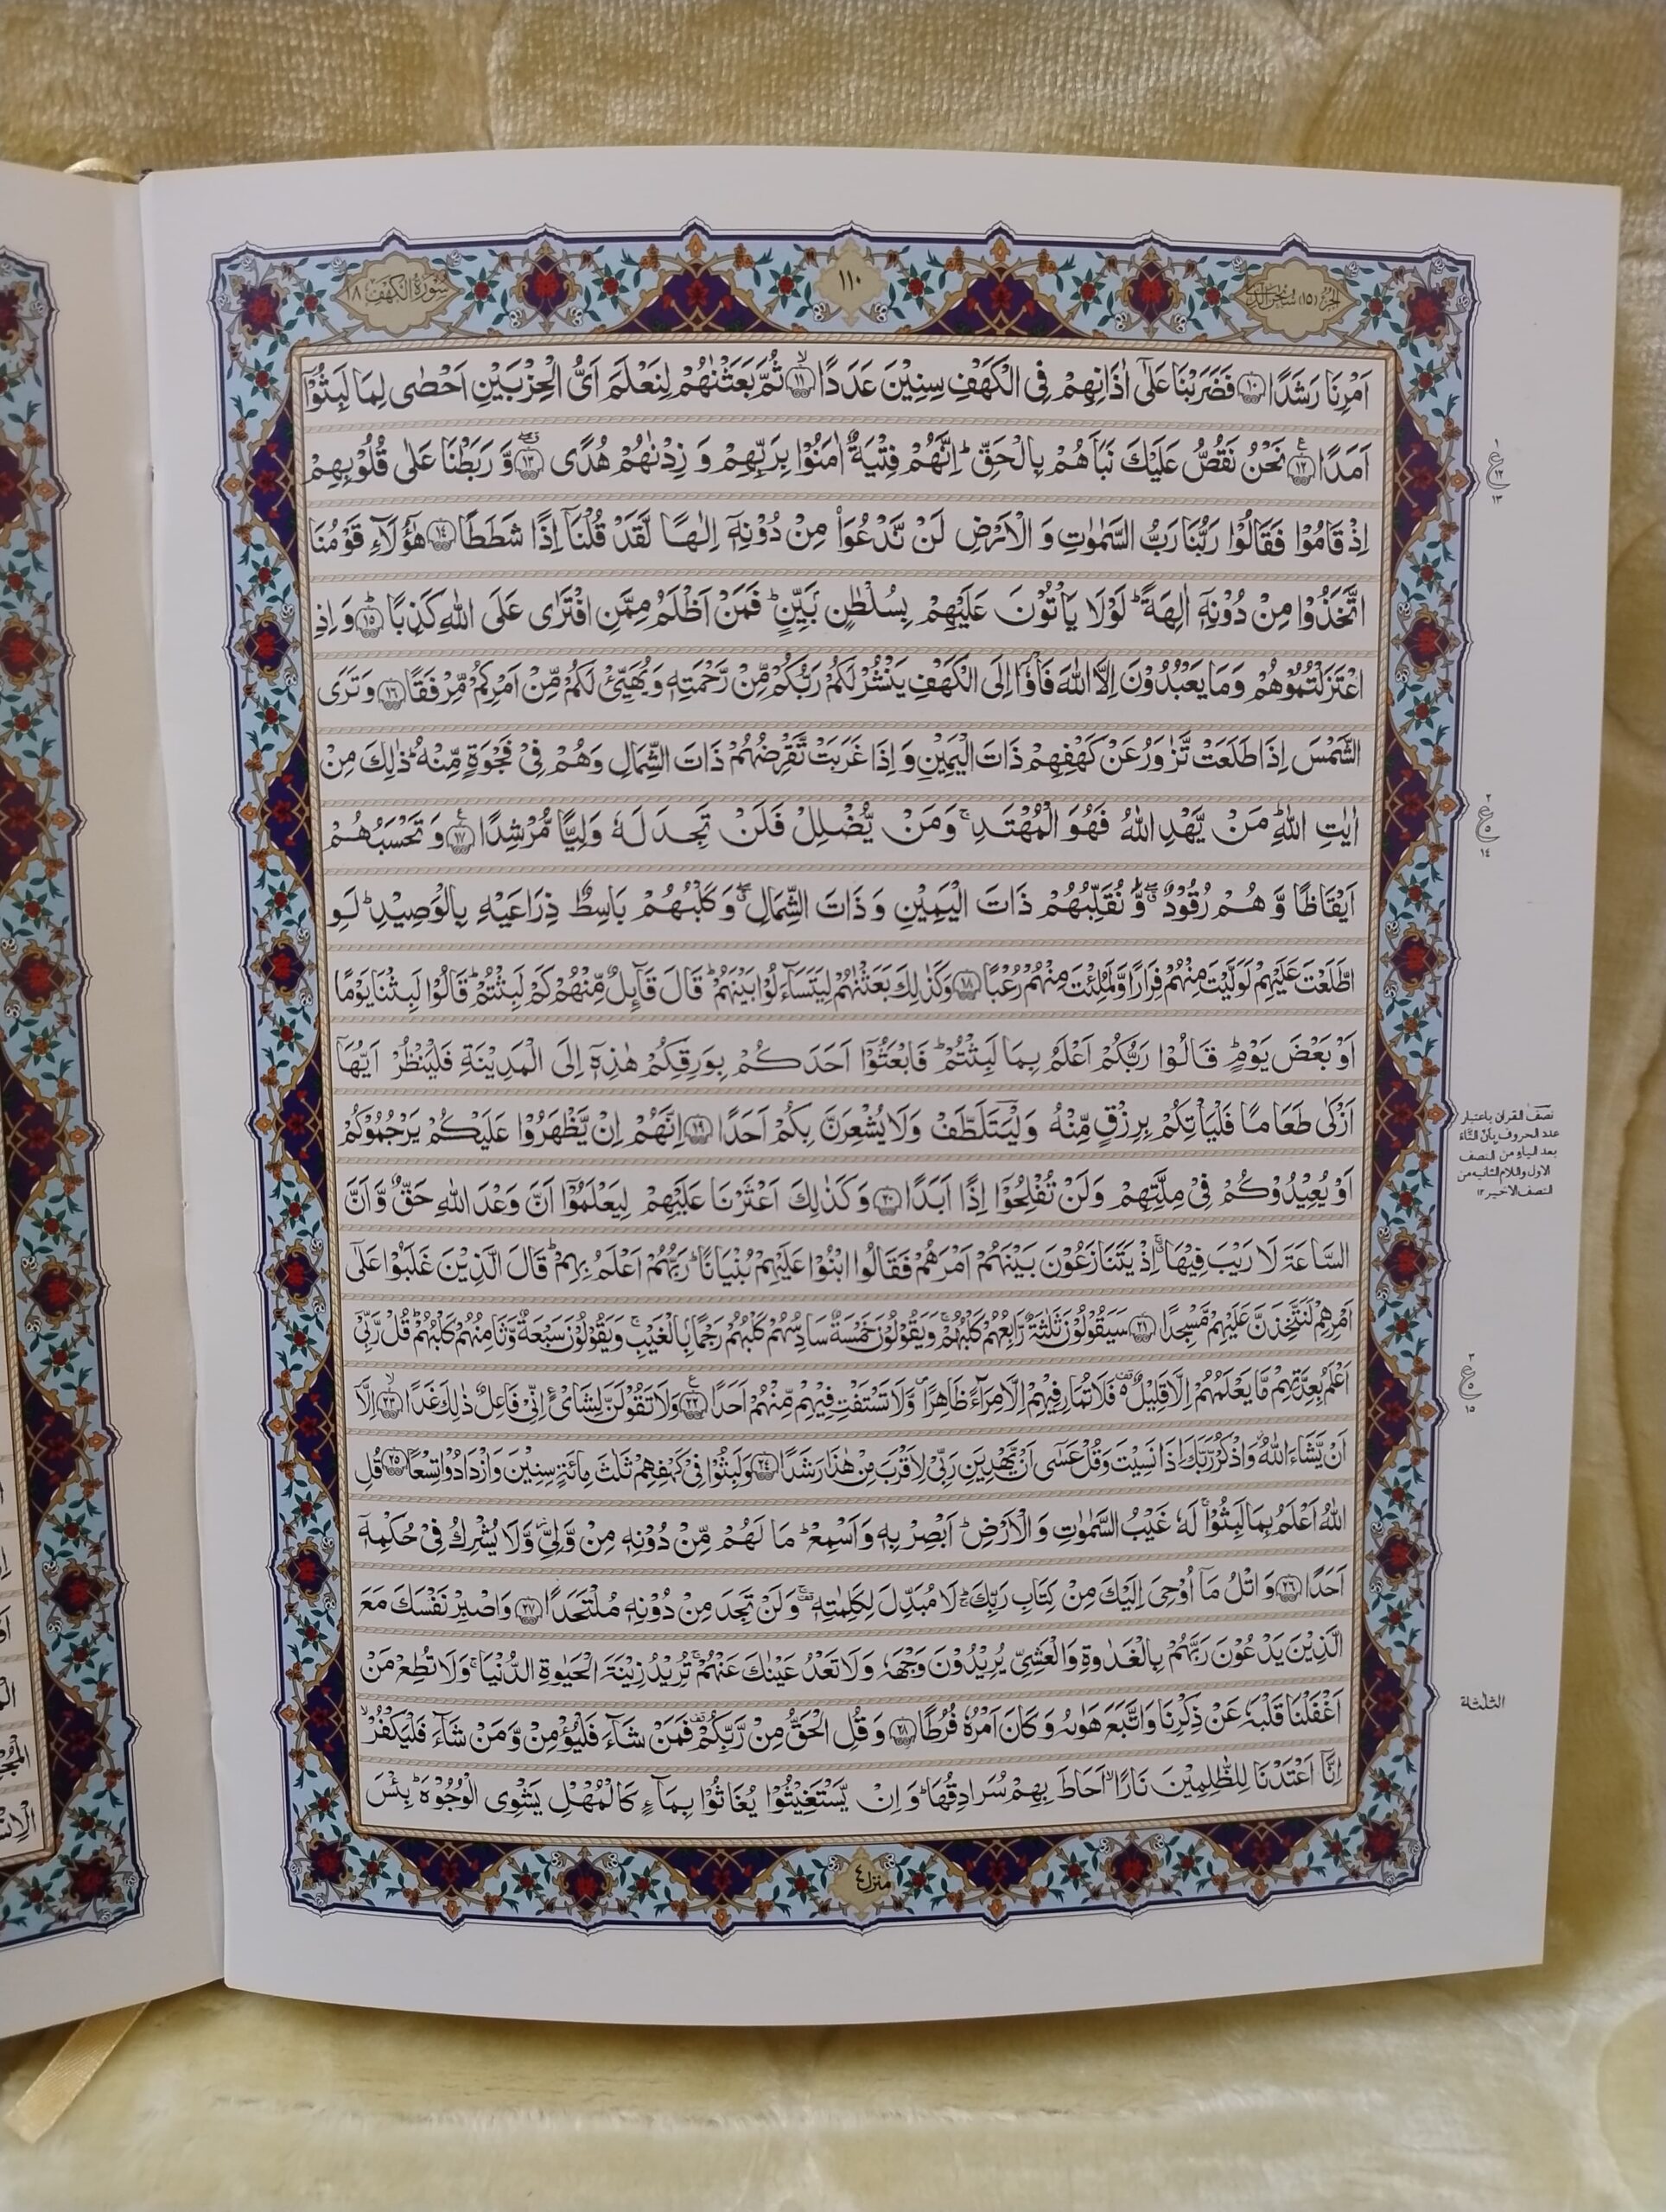 الجزء (١٥) سبحٰن الذى
١١٠
سُوْرَةُ الْكَهْفِ ١٨
اَمْرِنَا رَشَدًا ﴿١٠﴾ فَضَرَبْنَا عَلٰۤى اٰذَانِهِمْ فِى الْكَهْفِ سِنِيْنَ عَدَدًا ۙ﴿١١﴾ ثُمَّ بَعَثْنٰهُمْ لِنَعْلَمَ اَىُّ الْحِزْبَيْنِ اَحْصٰى لِمَا لَبِثُوْۤا
اَمَدًا ﴿١٢﴾ نَحْنُ نَقُصُّ عَلَيْكَ نَبَاَهُمْ بِالْحَقِّ ؕ اِنَّهُمْ فِتْيَةٌ اٰمَنُوْا بِرَبِّهِمْ وَ زِدْنٰهُمْ هُدًى ﴿١٣﴾ وَّ رَبَطْنَا عَلٰى قُلُوْبِهِمْ
اِذْ قَامُوْا فَقَالُوْا رَبُّنَا رَبُّ السَّمٰوٰتِ وَ الْاَرْضِ لَنْ نَّدْعُوَا۟ مِنْ دُوْنِهٖۤ اِلٰـهًـا لَّقَدْ قُلْنَاۤ اِذًا شَطَطًا ﴿١٤﴾ هٰۤؤُلَاۤءِ قَوْمُنَا
اتَّخَذُوْا مِنْ دُوْنِهٖۤ اٰلِهَةً ؕ لَوْلَا يَاْتُوْنَ عَلَيْهِمْ بِسُلْطٰنٍۭ بَيِّنٍ ؕ فَمَنْ اَظْلَمُ مِمَّنِ افْتَرٰى عَلَى اللّٰهِ كَذِبًا ؕ﴿١٥﴾ وَ اِذِ
اعْتَزَلْتُمُوْهُمْ وَمَا يَعْبُدُوْنَ اِلَّا اللّٰهَ فَاْوٗۤا اِلَى الْكَهْفِ يَنْشُرْ لَكُمْ رَبُّكُمْ مِّنْ رَّحْمَتِهٖ وَيُهَيِّئْ لَكُمْ مِّنْ اَمْرِكُمْ مِّرْفَقًا ﴿١٦﴾ وَ تَرَى
الشَّمْسَ اِذَا طَلَعَتْ تَّزٰوَرُ عَنْ كَهْفِهِمْ ذَاتَ الْيَمِيْنِ وَ اِذَا غَرَبَتْ تَّقْرِضُهُمْ ذَاتَ الشِّمَالِ وَهُمْ فِىْ فَجْوَةٍ مِّنْهُ ؕ ذٰلِكَ مِنْ
اٰيٰتِ اللّٰهِ ؕ مَنْ يَّهْدِ اللّٰهُ فَهُوَ الْمُهْتَدِ ۚ وَمَنْ يُّضْلِلْ فَلَنْ تَجِدَ لَهٗ وَلِيًّا مُّرْشِدًا ﴿١٧﴾ وَ تَحْسَبُهُمْ
اَيْقَاظًا وَّ هُمْ رُقُوْدٌ ۖ وَّ نُقَلِّبُهُمْ ذَاتَ الْيَمِيْنِ وَ ذَاتَ الشِّمَالِ ۖ وَ كَلْبُهُمْ بَاسِطٌ ذِرَاعَيْهِ بِالْوَصِيْدِ ؕ لَوِ
اطَّلَعْتَ عَلَيْهِمْ لَوَلَّيْتَ مِنْهُمْ فِرَارًا وَّلَمُلِئْتَ مِنْهُمْ رُعْبًا ﴿١٨﴾ وَكَذٰلِكَ بَعَثْنٰهُمْ لِيَتَسَآءَلُوْا بَيْنَهُمْ ؕ قَالَ قَآئِلٌ مِّنْهُمْ كَمْ لَبِثْتُمْ ؕ قَالُوْا لَبِثْنَا يَوْمًا
اَوْ بَعْضَ يَوْمٍ ؕ قَالُوْا رَبُّكُمْ اَعْلَمُ بِمَا لَبِثْتُمْ ؕ فَابْعَثُوْۤا اَحَدَكُمْ بِوَرِقِكُمْ هٰذِهٖۤ اِلَى الْمَدِيْنَةِ فَلْيَنْظُرْ اَيُّهَاۤ
اَزْكٰى طَعَامًا فَلْيَاْتِكُمْ بِرِزْقٍ مِّنْهُ وَلْيَتَلَطَّفْ وَلَا يُشْعِرَنَّ بِكُمْ اَحَدًا ﴿١٩﴾ اِنَّهُمْ اِنْ يَّظْهَرُوْا عَلَيْكُمْ يَرْجُمُوْكُمْ
اَوْ يُعِيْدُوْكُمْ فِىْ مِلَّتِهِمْ وَلَنْ تُفْلِحُوْۤا اِذًا اَبَدًا ﴿٢٠﴾ وَ كَذٰلِكَ اَعْثَرْنَا عَلَيْهِمْ لِيَعْلَمُوْۤا اَنَّ وَعْدَ اللّٰهِ حَقٌّ وَّ اَنَّ
السَّاعَةَ لَا رَيْبَ فِيْهَا ۚ اِذْ يَتَنَازَعُوْنَ بَيْنَهُمْ اَمْرَهُمْ فَقَالُوا ابْنُوْا عَلَيْهِمْ بُنْيَانًا ؕ رَبُّهُمْ اَعْلَمُ بِهِمْ ؕ قَالَ الَّذِيْنَ غَلَبُوْا عَلٰۤى
اَمْرِهِمْ لَنَتَّخِذَنَّ عَلَيْهِمْ مَّسْجِدًا ﴿٢١﴾ سَيَقُوْلُوْنَ ثَلٰثَةٌ رَّابِعُهُمْ كَلْبُهُمْ ۚ وَيَقُوْلُوْنَ خَمْسَةٌ سَادِسُهُمْ كَلْبُهُمْ رَجْمًۢا بِالْغَيْبِ ۚ وَيَقُوْلُوْنَ سَبْعَةٌ وَّثَامِنُهُمْ كَلْبُهُمْ ؕ قُلْ رَّبِّىْۤ
اَعْلَمُ بِعِدَّتِهِمْ مَّا يَعْلَمُهُمْ اِلَّا قَلِيْلٌ ۫ فَلَا تُمَارِ فِيْهِمْ اِلَّا مِرَآءً ظَاهِرًا ۪ وَّلَا تَسْتَفْتِ فِيْهِمْ مِّنْهُمْ اَحَدًا ﴿٢٢﴾ وَلَا تَقُوْلَنَّ لِشَاىْءٍ اِنِّىْ فَاعِلٌ ذٰلِكَ غَدًا ۙ﴿٢٣﴾ اِلَّاۤ
اَنْ يَّشَآءَ اللّٰهُ ؗ وَاذْكُرْ رَّبَّكَ اِذَا نَسِيْتَ وَقُلْ عَسٰۤى اَنْ يَّهْدِيَنِ رَبِّىْ لِاَقْرَبَ مِنْ هٰذَا رَشَدًا ﴿٢٤﴾ وَلَبِثُوْا فِىْ كَهْفِهِمْ ثَلٰثَ مِائَةٍ سِنِيْنَ وَازْدَادُوْا تِسْعًا ﴿٢٥﴾ قُلِ
اللّٰهُ اَعْلَمُ بِمَا لَبِثُوْا ۚ لَهٗ غَيْبُ السَّمٰوٰتِ وَ الْاَرْضِ ؕ اَبْصِرْ بِهٖ وَ اَسْمِعْ ؕ مَا لَهُمْ مِّنْ دُوْنِهٖ مِنْ وَّلِىٍّ ؗ وَّلَا يُشْرِكُ فِىْ حُكْمِهٖۤ
اَحَدًا ﴿٢٦﴾ وَ اتْلُ مَاۤ اُوْحِىَ اِلَيْكَ مِنْ كِتَابِ رَبِّكَ ؕ لَا مُبَدِّلَ لِكَلِمٰتِهٖ ۫ وَلَنْ تَجِدَ مِنْ دُوْنِهٖ مُلْتَحَدًا ﴿٢٧﴾ وَ اصْبِرْ نَفْسَكَ مَعَ
الَّذِيْنَ يَدْعُوْنَ رَبَّهُمْ بِالْغَدٰوةِ وَالْعَشِىِّ يُرِيْدُوْنَ وَجْهَهٗ وَلَا تَعْدُ عَيْنٰكَ عَنْهُمْ ۚ تُرِيْدُ زِيْنَةَ الْحَيٰوةِ الدُّنْيَا ۚ وَلَا تُطِعْ مَنْ
اَغْفَلْنَا قَلْبَهٗ عَنْ ذِكْرِنَا وَاتَّبَعَ هَوٰٮهُ وَ كَانَ اَمْرُهٗ فُرُطًا ﴿٢٨﴾ وَ قُلِ الْحَقُّ مِنْ رَّبِّكُمْ ۫ فَمَنْ شَآءَ فَلْيُؤْمِنْ وَّ مَنْ شَآءَ فَلْيَكْفُرْ ۙ
اِنَّاۤ اَعْتَدْنَا لِلظّٰلِمِيْنَ نَارًا ۙ اَحَاطَ بِهِمْ سُرَادِقُهَا ؕ وَ اِنْ يَّسْتَغِيْثُوْا يُغَاثُوْا بِمَآءٍ كَالْمُهْلِ يَشْوِى الْوُجُوْهَ ؕ بِئْسَ
منزل ٤
١
ع
١٢
١٣
٢
ع
١٤
نصف القران باعتبار
عدد الحروف بأن التاء
بعد الياء من النصف
الاول واللام الثانية من
النصف الاخير ١٢
٣
ع
١٥
الثلثة